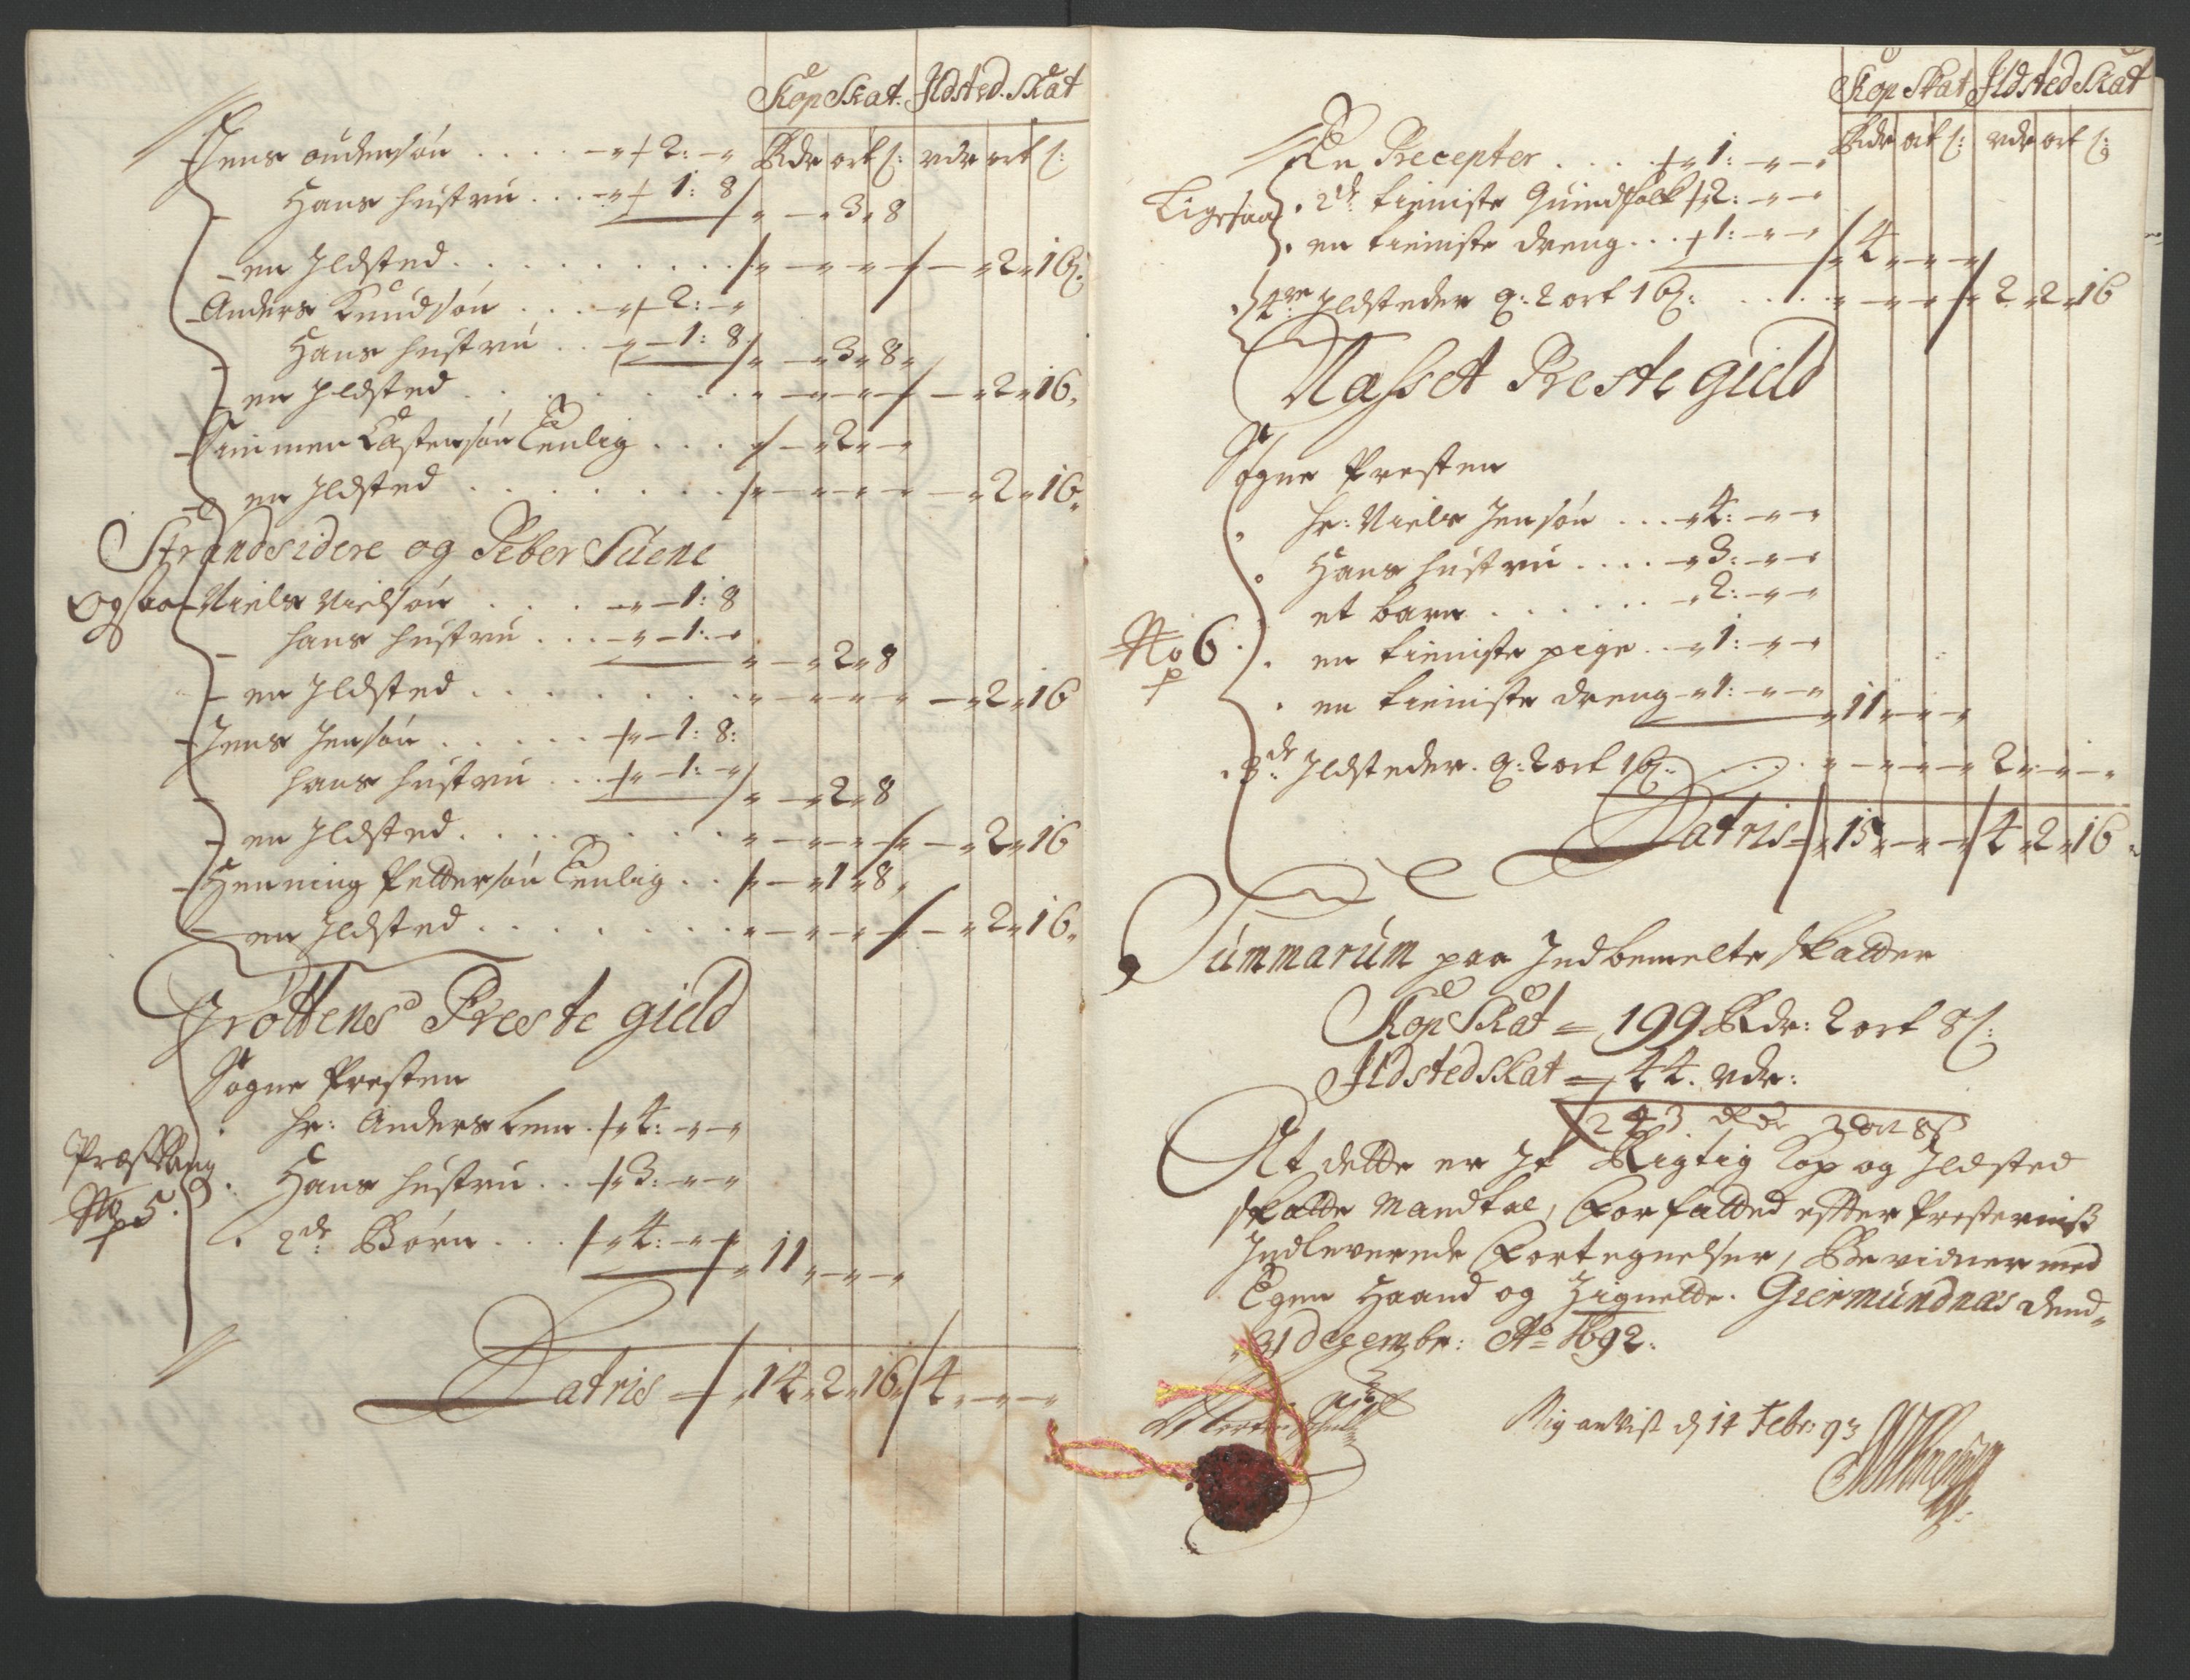 Kop Skat. Ildsted. Skat
Rdr ort s: rdr ort s:
Jens andersøn . . . . 2: -
Hans hustru . . . 1: 8 - 3 8
en Ildsted . . . . . . . . . - 2 16s:
Anders Knudsøn . . . 2: -
Hans hustru . . 1: 8. - 3 8
en Ildsted . . . . . . . . - 2 16.
Simmen Castensøn Eenlig . . . - 2 -
en Ildsted . . . . . . . - 2 16.
Strandsidere og Peber Suene
Ogsaa Niels Nielsøn . . . . 1: 8
hans hustru . . . 1: - - 2 8
en Ildsted . . . . . . . . - 2 16
Jens Jensøn . . . . . 1: 8:
hans hustru . . . 1: - - 2 8
en Ildsted . . . . . . . - 2 16
Henning Pettersøn Eenlig . . - 1 8
en Ildsted . . . . . . . . - 2 16.
Grøttens Preste gield
Sogne Presten
hr: Anders Lem . 4: - -
No 5.
Hans hustru . . 3: - -
2de: Børn . . . 4: - - 11 - -
Latris 14 2 16 4 - -
Kop Skat Ildsted Skat
Rdr ort s: rdr ort s:
En Precepter . . . . 1: - -
Ligesaa 2de: tieniste Quindfolk 2: - -
en tieniste dreng . . . 1: - - 4 - -
4re Ildsteder a: 2 ort 16s: . . . . 2 2 16
Nasset Preste gield
Sogne Presten
hr: Niels Jensøn . . . 4: - -
Hans hustru . . . . 3: - -
et barn . . . . . . 2: - -
No 6.
en tieniste pige . . 1: - -
en tieniste dreng 1: - - 11 - -
3de: Ildsteder. a: 2 ort 16s: . . . . 2 - -
Latris 15 - - 4 2 16
Summarum paa Indbemelte skatter
Kop Skat = 199 Rdr: 2 ort 8s:
Ildsted Skat = 44. rdr:
243 Rdr 2 ort 8s
At dette er It Rigtig Kop og Ildsted
skatte Mandtal, Forfatted efter Presternis
Indleverede Fortegnelser, Bevidner med
Egen Haand og Zignette. Giermundnæs dend
31 Dezembr: Ao 1692.
Mig anvist d 14 Febr: 93